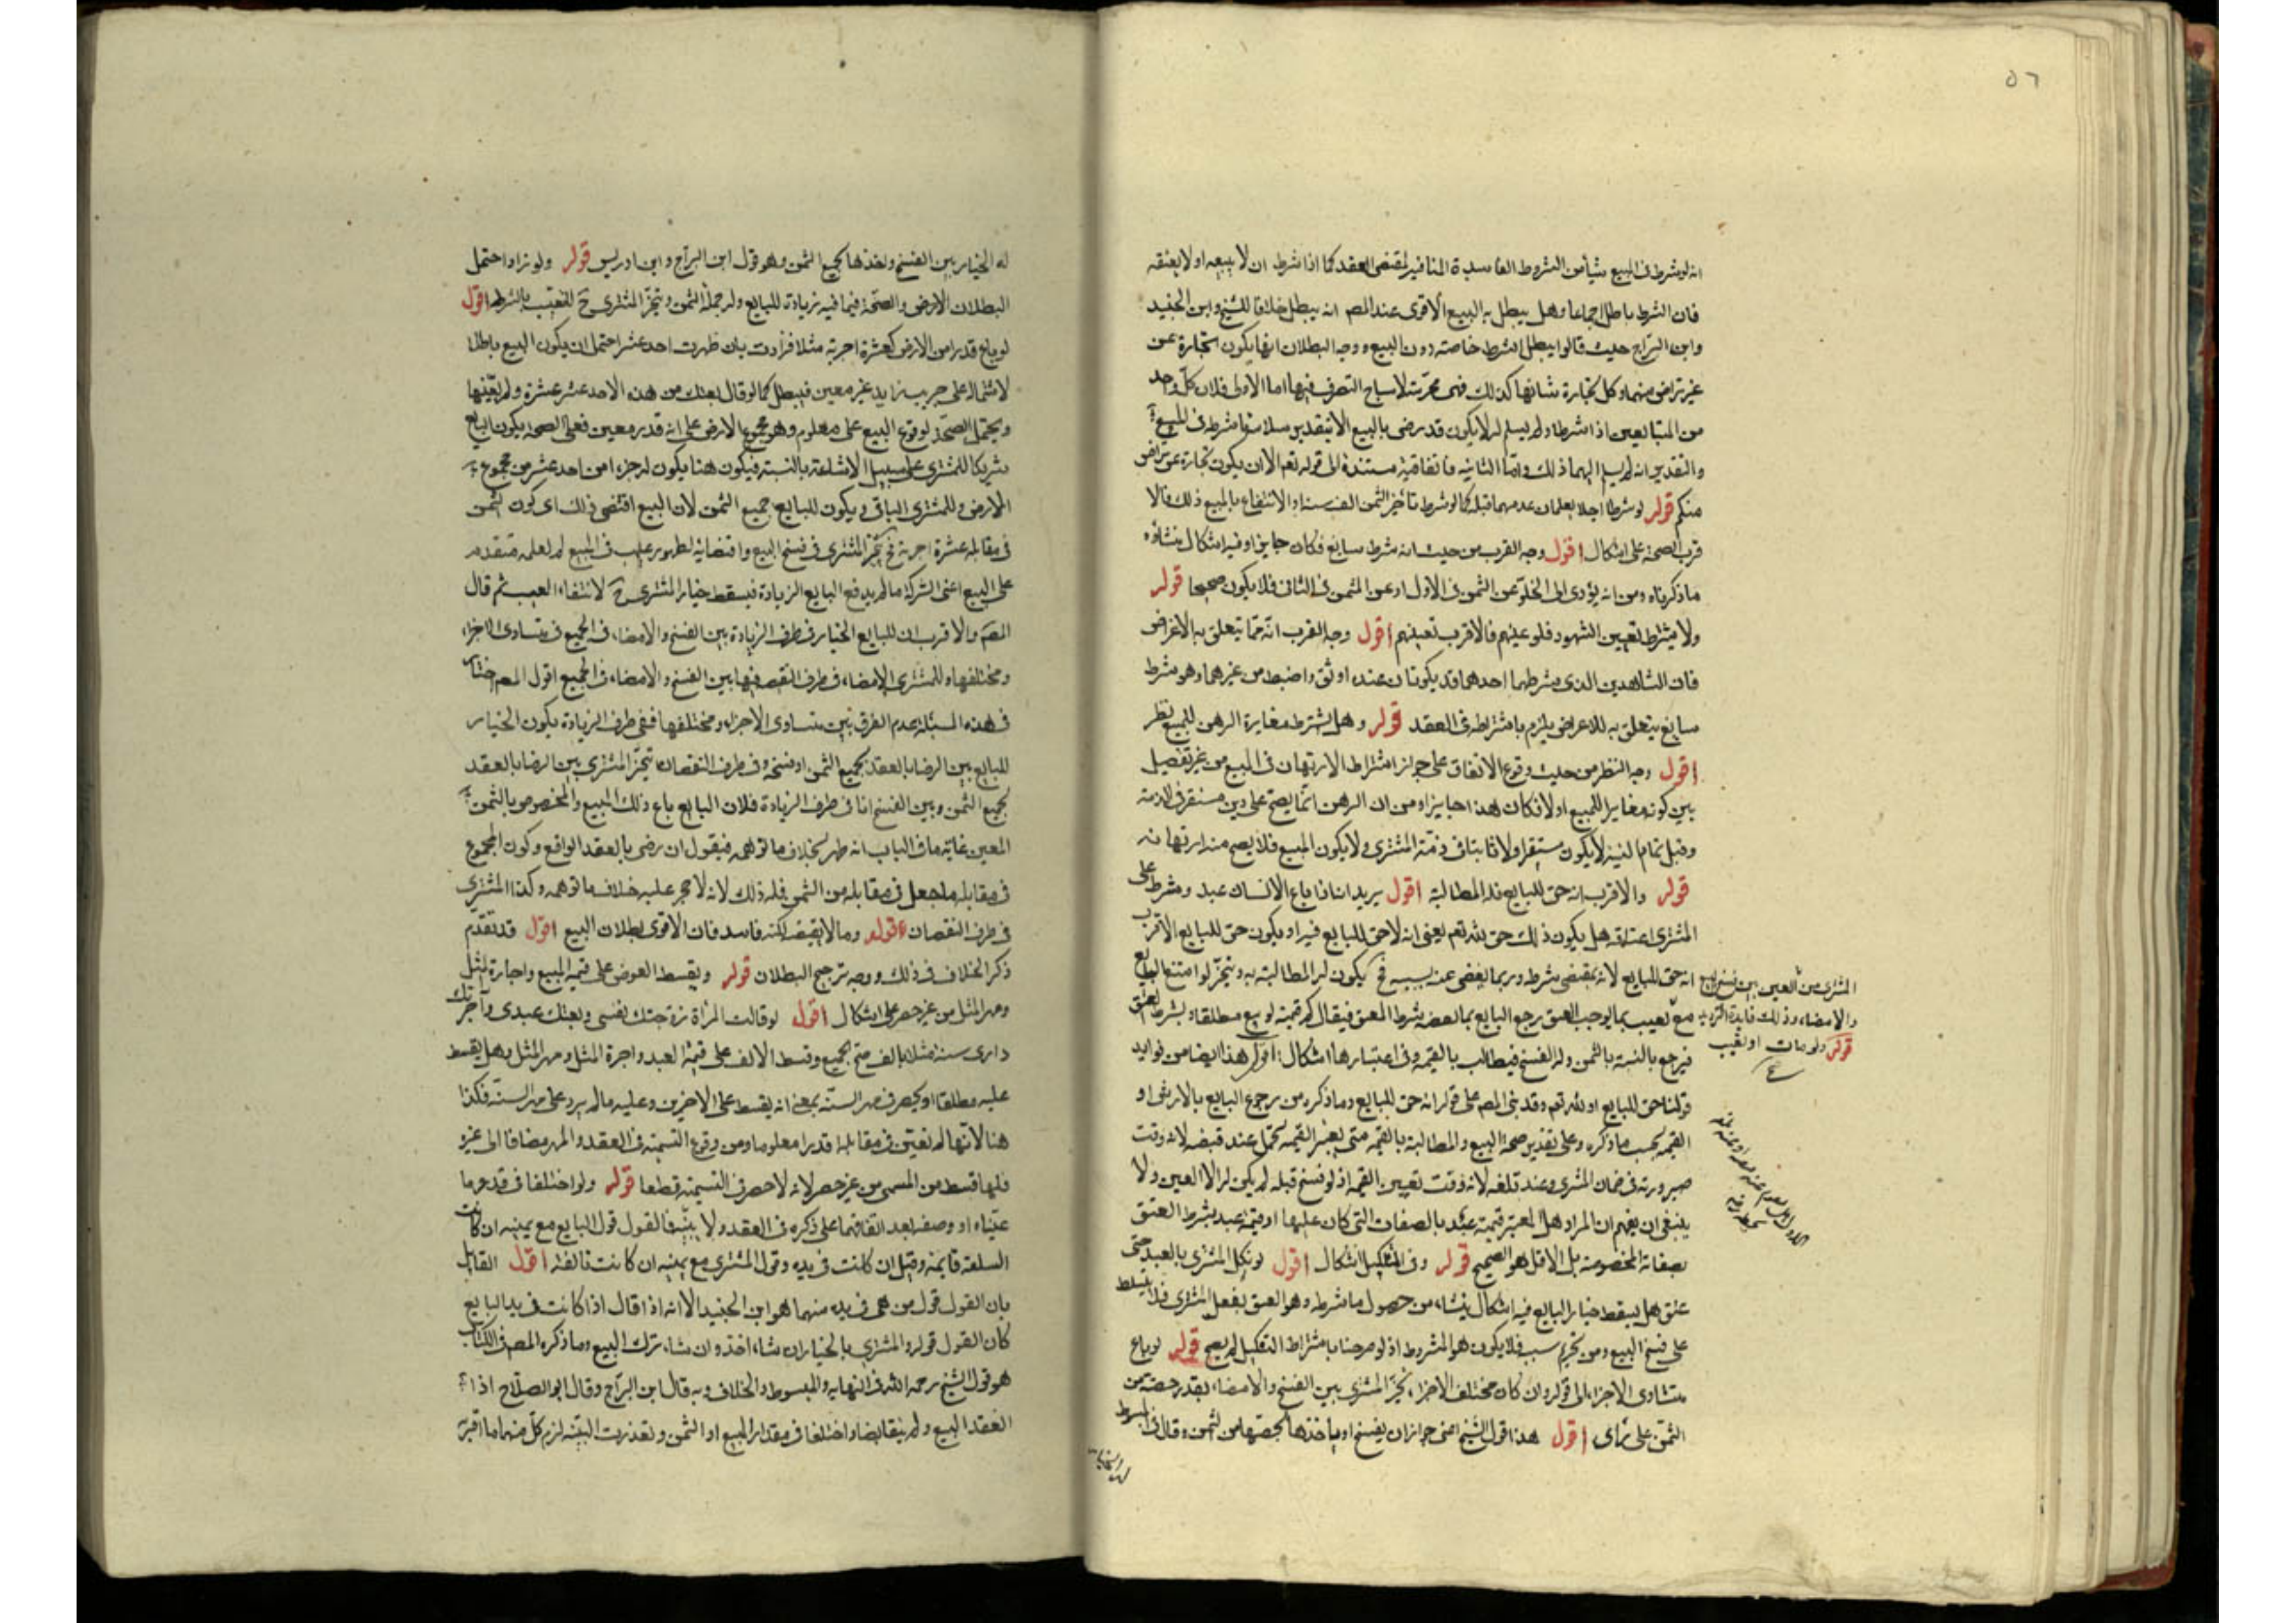 ٥٦
انه لو شرط فى المبيع شيأ من الشروط الفاسدة المنافيه لمقتضى العقد كما اذا شرط ان لا يبيعه او لا يعتقه
فان الشرط باطل اجماعا وهل يبطل به البيع الأقوى عند المصه انه يبطل خلافا للشيخ وابن الجنيد
وابن البراج حيث قالوا يبطل الشرط خاصة دون البيع ووجه البطلان انها يكون تجارة عن
غير تراض منهما وكل تجارة شانها كذلك فهى محرمة لا يباح التصرف فيها اما الأولى فلان كل واحد
من المتبايعين اذا شرط ولم يسلم له لا يكون قد رضى بالبيع الا بتقدير سلامة ما شرط فى المبيع
والتقدير انه لم يسلم اليهما ذلك واما الثانيه فاتفاقية مستندة الى قوله تعم الا ان يكون تجارة عن تراض
منكم قوله لو شرطا اجلا يعلمان عدمهما قبله كما لو شرط تأخير الثمن الف سنة او الانتفاع بالمبيع ذلك فالا
قرب الصحة على اشكال اقول وجه القرب من حيث انه شرط سايغ فكان جايزا وفيه اشكال ينشأ
ما ذكرناه ومن انه يؤدى الى الخلو عن الثمن فى الاول او عن المثمن فى الثانى فلا يكون صحيحا قوله
ولا يشترط تعيين الشهود فلو عينهم فالاقرب تعينهم اقول وجه القرب انه مما يتعلق به الاغراض
فان الشاهدين الذى يشرطهما احدهما قد يكونان عنده اوثق واضبط من غيرهما وهو شرط
سايغ يتعلق به للاغراض يلزم باشتراطه فى العقد قوله وهل يشترط مغايرة الرهن للمبيع نظر
اقول وجه النظر من حيث وقوع الاتفاق على جواز اشتراط الارتهان فى المبيع من غير تفصيل
بين كونه مغايرا للمبيع او لا فكان هذا جايزا ومن ان الرهن انما يصح على دين مستقر فى الذمة
وقبل تمام البيع لا يكون مستقرا ولا ثابتا فى ذمة المشترى ولا يكون المبيع فلا يصح منه ارتهانه
قوله والاقرب انه حق للبايع فله المطالبة اقول يريد انه اذا باع الانسان عبد وشرط على
المشترى اعتاقه هل يكون ذلك حق لله تعم يعنى انه لا حق للبايع فيه او يكون حق للبايع الاقرب
انه حق للبايع لانه بمقتضى شرطه وربما يغضى عنه بسببه فح يكون له المطالبة به ويتخير لو امتنع البايع
مع تعيب بما يوجب العتق رجع البايع بما نقصه شرط العتق فيقال كم قيمته لو بيع مطلقا وبشرط العتق
فيرجع بالنسبة بالثمن وله الفسخ فيطالب بالقيمه وفى اعتبارها اشكال اقول هذا ايضا من فوايد
قولنا حق للبايع او لله تعم وقد بنى المصه على قوله انه حق للبايع وما ذكره من رجوع البايع بالارش او
القيمه بحسب ما ذكره وعلى تقدير صحة البيع والمطالبة بالقيمه متى يعتبر القيمه يحتمل عند قبضه لانه وقت
صيرورته فى ضمان المشترى وعند تلفه لانه وقت تعيين القيمه اذ لو فسخ قبله لم يكن له الا العين ولا
ينبغى ان يفهم ان المراد هل المعتبر قيمة عبد بالصفات التى كان عليها او قيمة عبد بشرط العتق
بصفاته المخصوصة بل الاقل هو الصحيح قوله وفى التنكيل اشكال اقول لو نكل المشترى بالعبد حتى
عتق هل يسقط خيار البايع فيه اشكال ينشأ من حصول ما شرطه وهو العتق بفعل المشترى فلا يتسلط
على فسخ البيع ومن تحريم سبب فلا يكون هو المشروط اذ لو صرحنا باشتراط التنكيل لم يصح قوله لو باع
متساوى الاجزاء الى قوله وان كان مختلف الاجزاء تخير المشترى بين الفسخ والامضاء بقدر حصته من
الثمن على رأى اقول هذا قول الشيخ اعنى جواز ان يفسخ او ياخذها بحصتها من الثمن وقال فى المبسوط
المشترى من العين بين فسخ البيع
والامضاء وذلك فايدة الترديد
قوله ولو مات او تعيب
له الخيار بين الفسخ واخذها بجميع الثمن وهو قول ابن البراج وابن ادريس قوله ولو زاد احتمل
البطلان الارض والصحة فيما فيه زيادة للبايع وله جملة الثمن ويتخير المشترى ح للتعيب بالشركة اقول
لو باع قدرا من الارض كعشرة اجربة مثلا فزادت بان ظهرت احد عشر احتمل ان يكون البيع باطلا
لاشتماله على جريب زايد غير معين فيبطل كما لو قال بعتك من هذه الاحد عشر عشرة ولم يعينها
ويحتمل الصحة لوقوع البيع على معلوم وهو مجموع الارض على انه قدر معين فعلى الصحة يكون البايع
شريكا للمشترى على سبيل الاشاعة بالنسبة فيكون هنا يكون له جزءا من احد عشر من مجموع
الارض وللمشترى الباقى ويكون للبايع جميع الثمن لان البيع اقتضى ذلك اى كون الثمن
فى مقابلة عشرة اجربة فح يتخير المشترى فى فسخ البيع وامضائه لظهور عيب فى المبيع لم يعلمه متقدم
على البيع اعنى الشركة ما لم يدفع البايع الزيادة فيسقط خيار المشترى ح لانتفاء العيب ثم قال
المصه والاقرب ان للبايع الخيار فى طرف الزيادة بين الفسخ والامضاء فى الجميع فى متساوى الاجزاء
ومختلفها وللمشترى الامضاء فى طرف النقص فيها بين الفسخ والامضاء فى الجميع اقول المصه اختار
فى هذه المسئلة عدم الفرق بين متساوى الاجزاء ومختلفها ففى طرف الزيادة يكون الخيار
للبايع بين الرضا بالعقد بجميع الثمن او فسخه وفى طرف النقصان يتخير المشترى بين الرضا بالعقد
بجميع الثمن وبين الفسخ اما فى طرف الزيادة فلان البايع باع ذلك المبيع والمخصوص بالثمن
المعين غاية ما فى الباب انه ظهر بخلاف ما توهمه فيقول ان رضى بالعقد الواقع وكون المجموع
فى مقابلة ما جعل فى مقابله من الثمن فله ذلك لانه لا حجر عليه خلاف ما توهمه وكذا المشترى
فى طرف النقصان قوله وما لا يقتضيه لكنه فاسد فان الاقوى بطلان البيع اقول قد تقدم
ذكر الخلاف فى ذلك ووجه ترجيح البطلان قوله ويقسط العوض على قيمة المبيع واجارة المثل
ومهر المثل من غير حصر على اشكال اقول لو قالت المرأة زوجتك نفسى وبعتك عبدى وآجرتك
دارى سنة مثلا بالف صح الجميع وقسط الالف على قيمة العبد واجرة المثل ومهر المثل وهل يقسط
عليه مطلقا او يحصر فى مهر السنة بمعنى انه يقسط على الاخيرين وعليه ما لم يزد على مهر السنة فكذا
هنا لانها لم تعين فى مقابلة قدرا معلوما ومن وقوع التسمية فى العقد والمهر مضافا الى غيره
فلها قسط من المسمى من غير حصر لانه لا حصر فى التسمية قطعا قوله ولو اختلفا فى قدر ما
عيناه او وصفه بعد اتفاقهما على ذكره فى العقد ولا بينة فالقول قول البايع مع يمينه ان كانت
السلعة قايمة وقيل ان كانت فى يده وقول المشترى مع يمينه ان كانت تالفة اقول القايل
بان القول قول من هى فى يده منهما هو ابن الجنيد الا انه اذا قال اذا كانت فى يد البايع
كان القول قوله والمشترى بالخيار ان شاء اخذ وان شاء ترك البيع وما ذكره المصه فى الكتاب
هو قول الشيخ رحمه الله فى النهايه والمبسوط والخلاف وبه قال ابن البراج وقال ابو الصلاح اذا
انعقد البيع ولم يتقابضا واختلفا فى مقدار المبيع او الثمن وتعذرت البينه لزم كل منهما ما اقر به